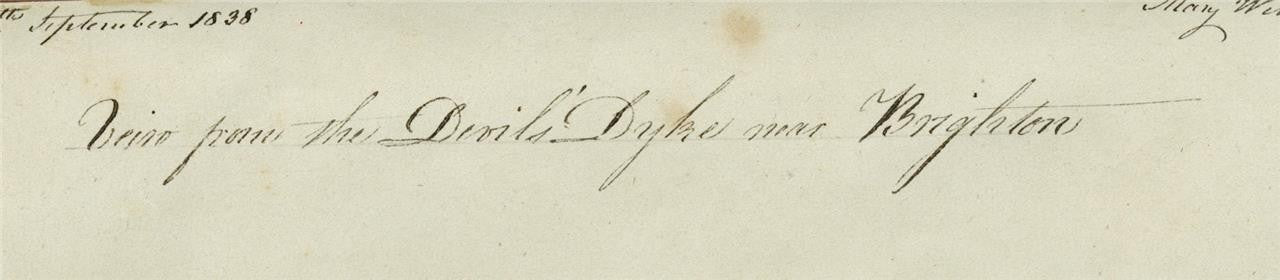 th September 1838
Mary
Veiw from the Devil's Dyke near Brighton